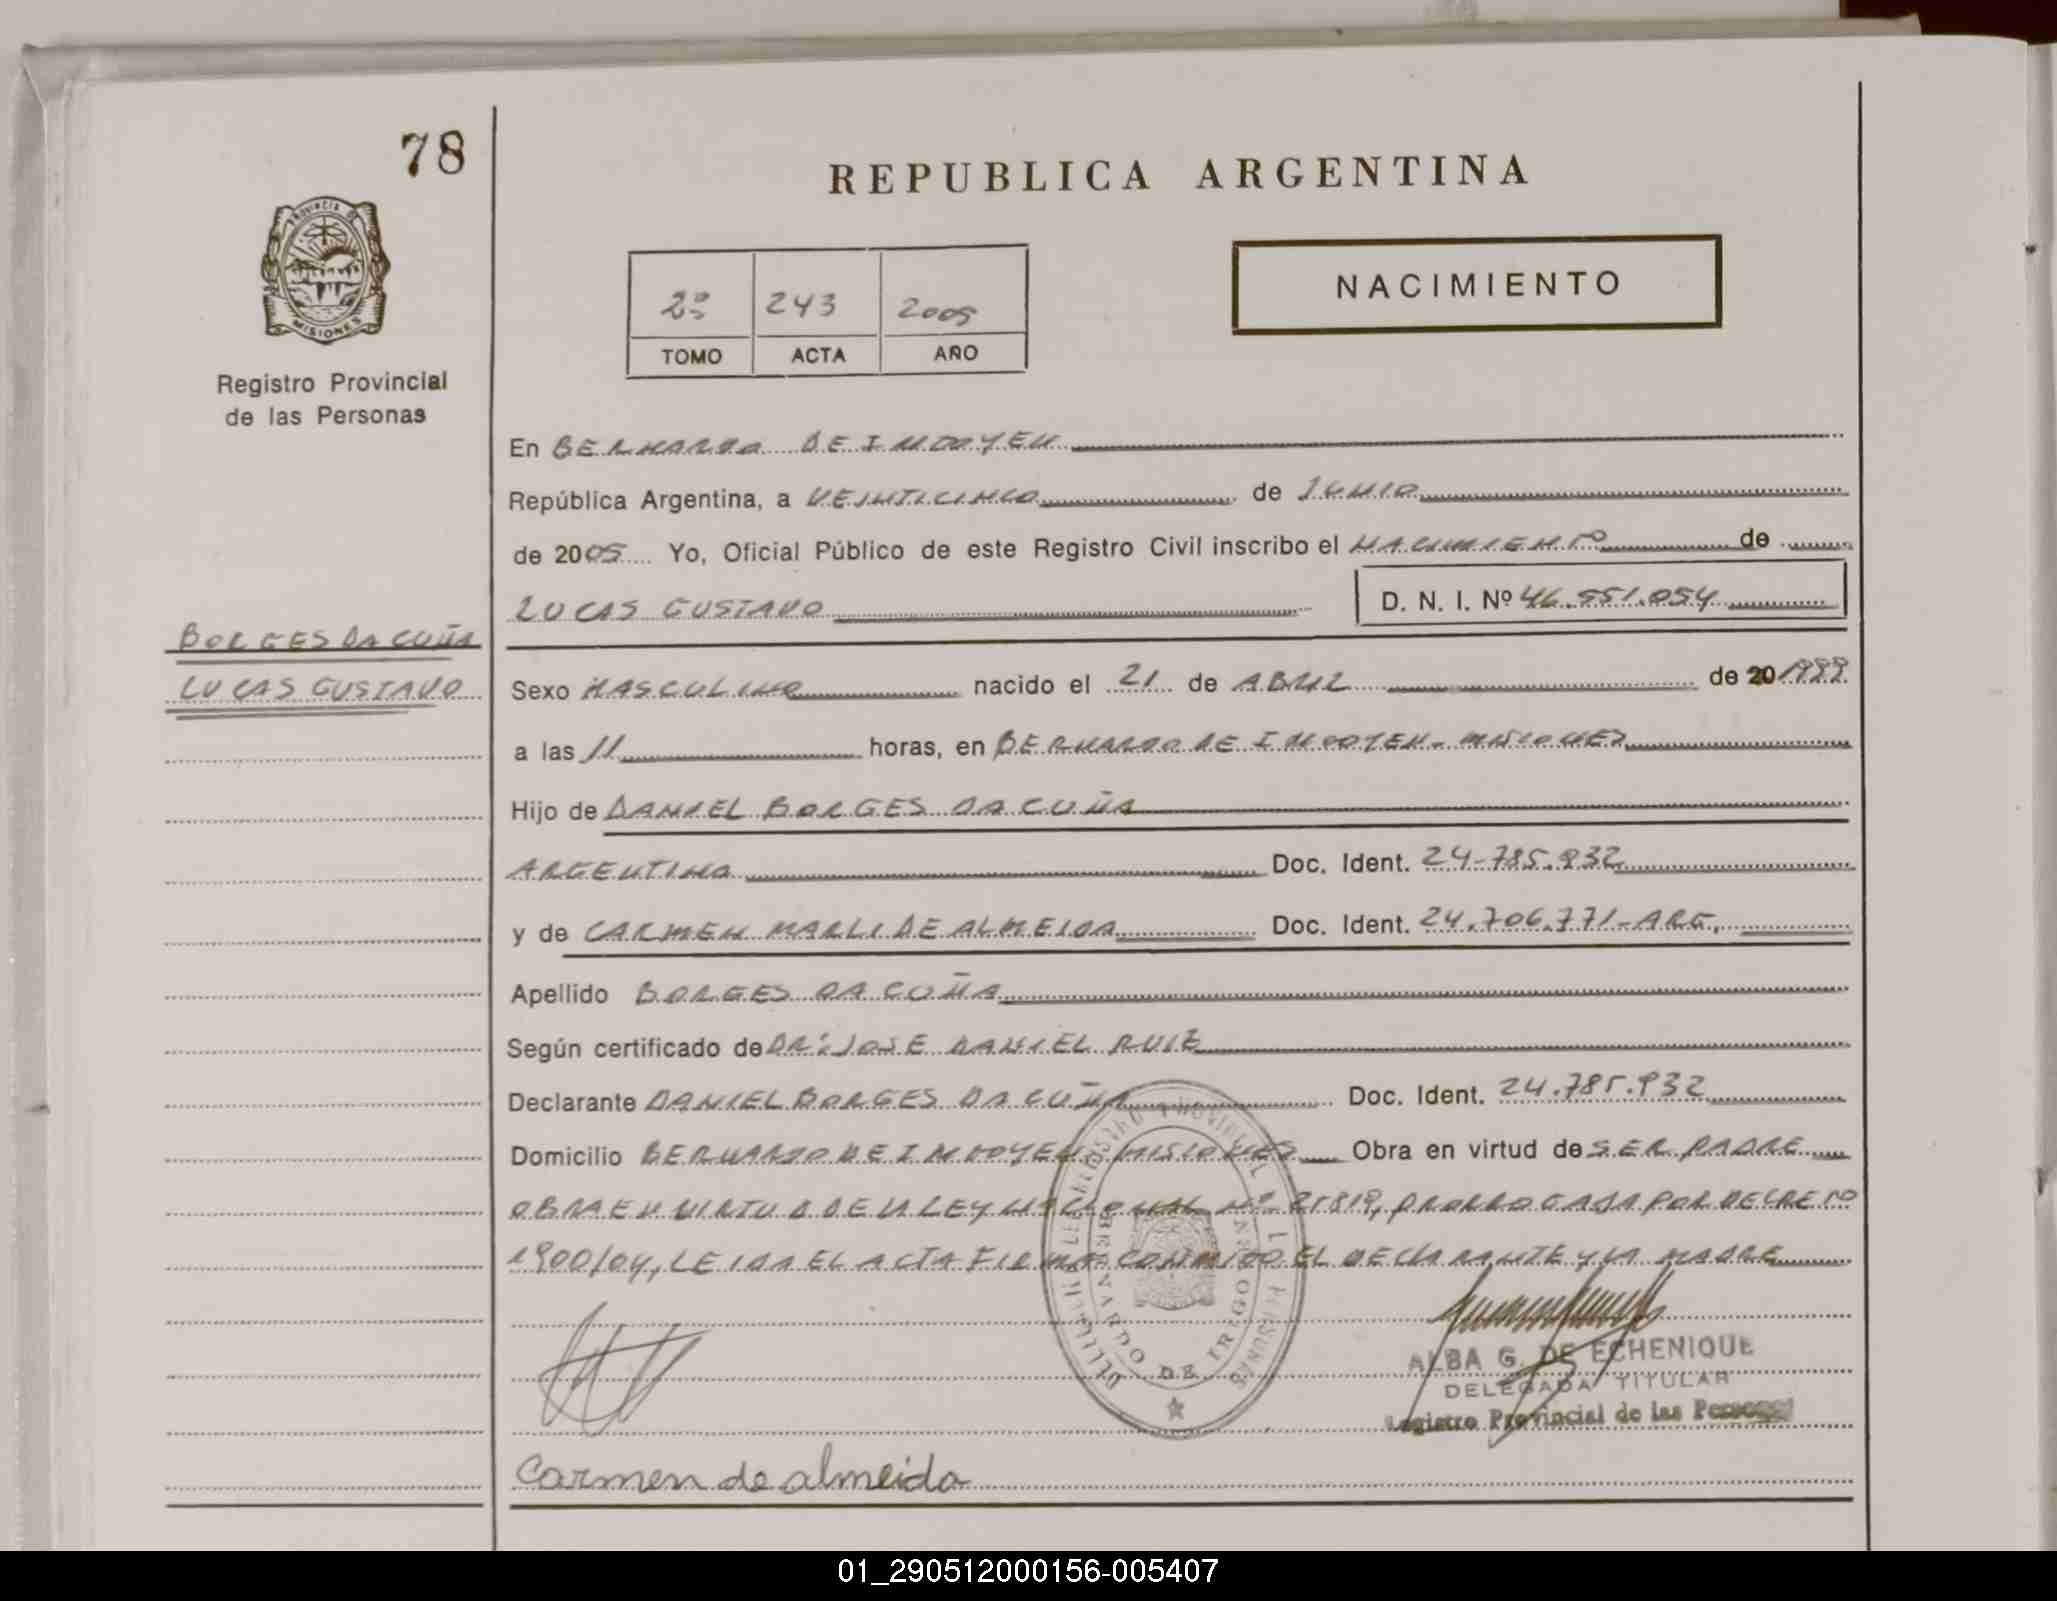 78
REPUBLICA ARGENTINA
PROVINCIA DE
MISIONES
Registro Provincial
de las Personas
NACIMIENTO
2º 243 2005
TOMO ACTA AÑO
En BERNARDO DE IRIGOYEN
República Argentina, a VEINTICINCO de JUNIO
de 2005 Yo, Oficial Público de este Registro Civil inscribo el NACIMIENTO de
LUCAS GUSTAVO D. N. I. Nº 46.551.054
BORGES DA CUÑA
LUCAS GUSTAVO
Sexo MASCULINO nacido el 21 de ABRIL de 20 1999
a las 11 horas, en BERNARDO DE IRIGOYEN - MISIONES
Hijo de DANIEL BORGES DA CUÑA
ARGENTINO Doc. Ident. 24-785.932
y de CARMEN MARLI DE ALMEIDA Doc. Ident. 24.706.771-ARG.
Apellido BORGES DA CUÑA
Según certificado de DR: JOSE DANIEL RUIZ
Declarante DANIEL BORGES DA CUÑA Doc. Ident. 24.785.932
Domicilio BERNARDO DE IRIGOYEN MISIONES Obra en virtud de SER PADRE
OBRA EN VIRTUD DE LA LEY NACIONAL Nº 25819, PRORROGADA POR DECRETO
1900/04, LEIDA EL ACTA FIRMAN CONMIGO EL DECLARANTE Y LA MADRE
BERNARDO DE IRIGOYEN
ALBA G. DE ECHENIQUE
DELEGADA TITULAR
Registro Provincial de las Personas
Carmen de almeida
01_290512000156-005407